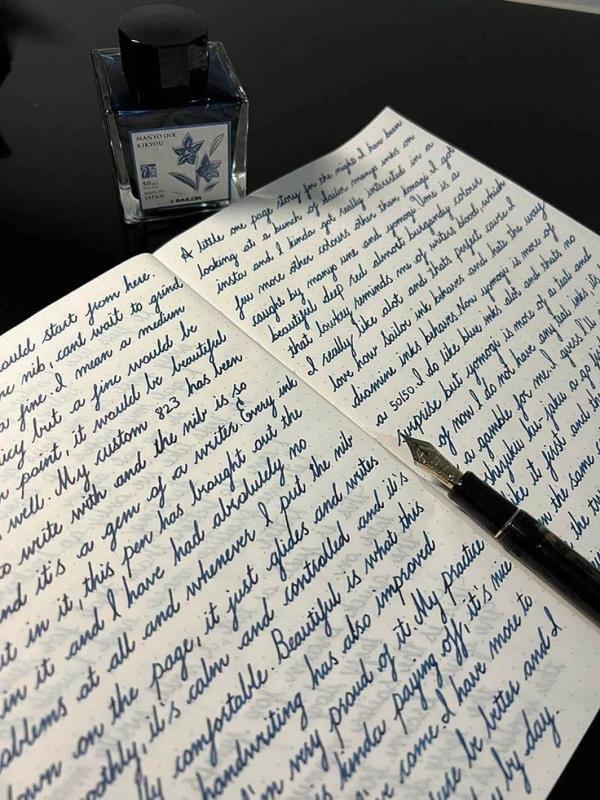 MANYO INK
KIKYOU
50ml
MADE IN
JAPAN
SAILOR
ould start from here.
nib, cant wait to grind
a fine. I mean a medium
icy but a fine would be
point, it would be beautiful
well. My custom 823 has been
to write with and the nib is so
nd it's a gem of a writer. Every ink
ut in it, this pen has brought out the
in it and I have had absolutely no
oblems at all and whenever I put the nib
down on the page, it just glides and writes
oothly, it's calm and controlled and it's
lly comfortable. Beautiful is what this
handwriting has also improved
I'm very proud of it. My practice
is kinda paying off, it's nice
've come. I have more to
use be better and I
by day.
A little one page story for the night. I have been
looking at a bunch of sailor manyo inks on
insta and I kinda got really interested in a
few more other colours other than konagi. I got
caught by manyo ume and yomogi. Ume is a
beautiful deep red almost burgandy colour
that lowkey reminds me of writers blood, which
I really like alot and thats perfect cause I
love how sailor ink behaves and hate the way
diamine inks behave. Now yomogi is more of
a 50/50. I do like blue inks alot and thats no
surprise but yomogi is more of a teal and
of now I do not have any teal inks, it's
a gamble for me. I guess I'll
shizuku ku-jaku a go
like it first and
in the same
the